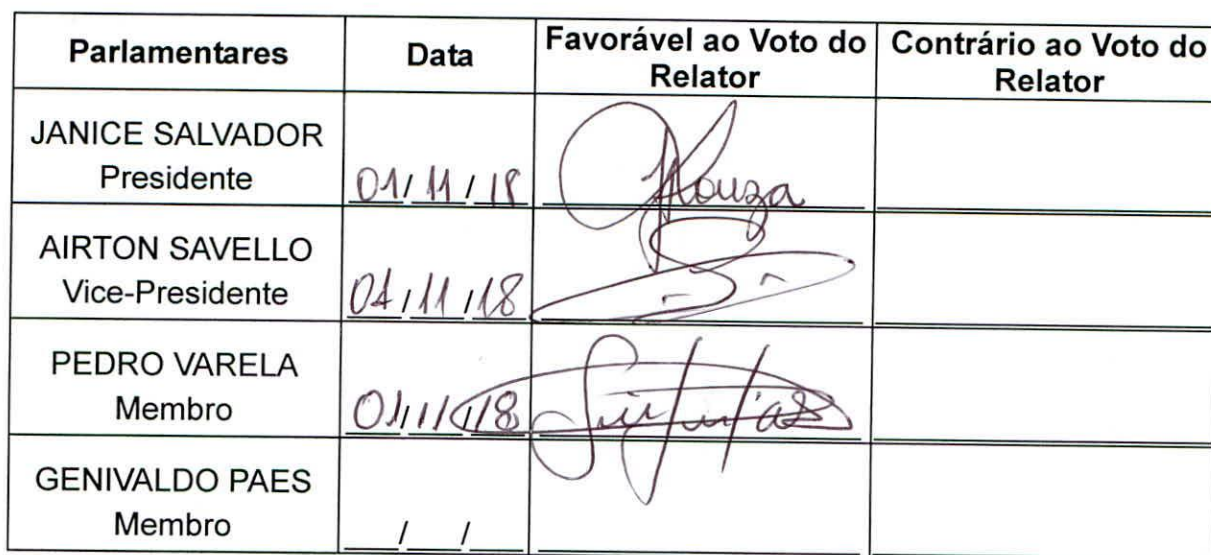 Parlamentares Data Favorável ao Voto do Relator Contrário ao Voto do Relator
JANICE SALVADOR
Presidente 01/11/18 Souza
AIRTON SAVELLO
Vice-Presidente 01/11/18
PEDRO VARELA
Membro 01/11/18
GENIVALDO PAES
Membro / /